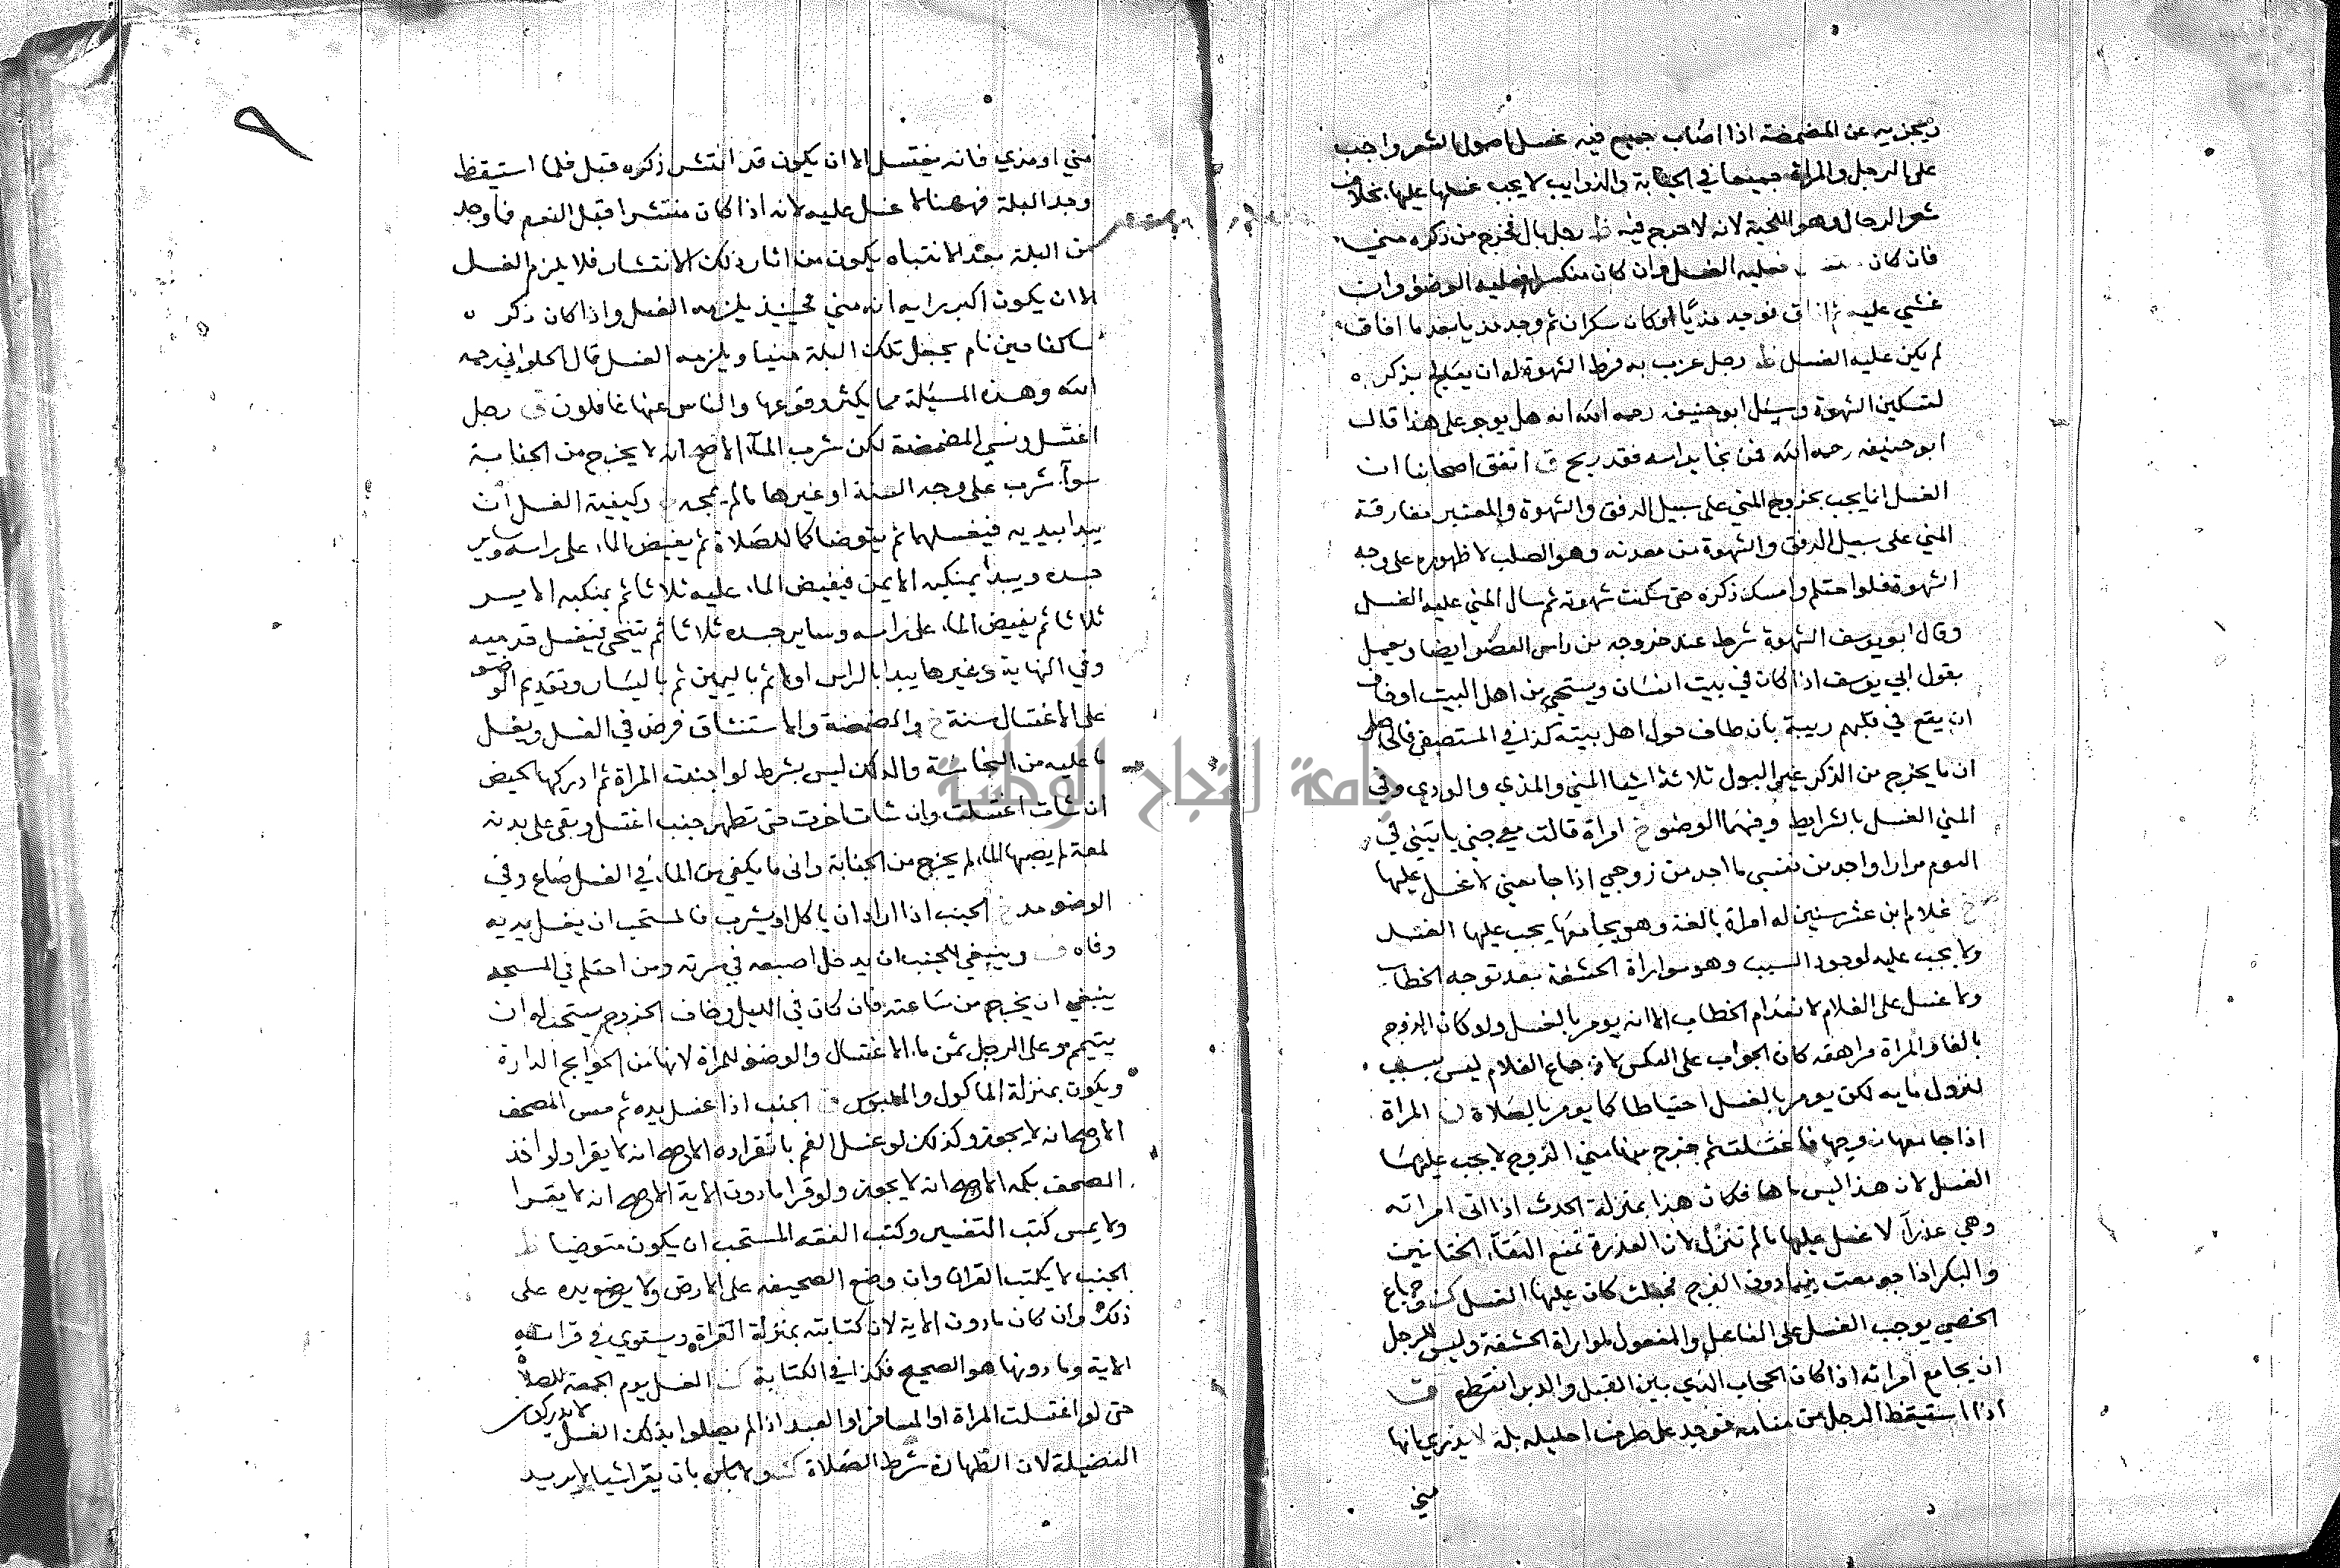 ويجزيه عن المضمضة اذا اصاب جميع فيه غسل اصول الشعر واجب
على الرجل والمراة جميعا في الجنابة والذوايب لا يجب غسلها عليها بخلاف
شعر الرجال وهو اللحية لانه لا حرج فيه ظ رجل بال فخرج من ذكره مني
فان كان فعليه الغسل وان كان منكسرا فعليه الوضؤ وان
غشي عليه ثم افاق فوجد مذيا او كان سكران ثم وجد مذيا بعد ما افاق
لم يكن عليه الغسل ظ رجل عزب به فرط الشهوة له ان يعالج بذكره
لتسكين الشهوة وسئل ابو حنيفه رحمه الله انه هل يوجر على هذا قال
ابو حنيفه رحمه الله فمن نجا براسه فقد ربح ق اتفق اصحابنا ان
الغسل انما يجب بخروج المني على سبيل الدفق والشهوة والمعتبر مفارقة
المني على سبيل الدفق والشهوة من معدنه وهو الصلب لا ظهوره على وجه
الشهوة فلو احتلم وامسك ذكره حتى سكنت شهوته ثم سال المني عليه الغسل
وقال ابو يوسف الشهوة شرط عند خروجه من راس العضو ايضا ويعمل
بقول ابي يوسف اذا كان في بيت انسان ويستحي من اهل البيت او خاف
ان يقع في قلبهم ريبة بان طاف حول اهل بيته كذا في المستصفى فالحاصل
ان ما يخرج من الذكر غير البول ثلاثة اشيا المني والمذي والودي وفي
المني الغسل بالشرايط وفيهما الوضو خ امراة قالت معي جني ياتيني في
النوم مرارا واجد من نفسي ما اجد من زوجي اذا جامعني لا غسل عليها
خ غلام ابن عشر سنين له امراة بالغة وهو يجامعها يجب عليها الغسل
ولا يجب عليه لوجود السبب وهو مواراة الحشفة بعد توجه الخطاب
ولا غسل على الغلام لانعدام الخطاب الا انه يومر بالغسل ولو كان الزوج
بالغا والمراة مراهقه كان الجواب على العكس لان جماع الغلام ليس بسبب
لنزول مايه لكن يومر بالغسل احتياطا كما يومر بالصلاة ن المراة
اذا جامعها زوجها فاغتسلت ثم خرج منها مني الزوج لا يجب عليها
الغسل لان هذا ليس ماها فكان هذا بمنزلة الحدث اذا اتى امراته
وهي عذرآ لا غسل عليها ما لم تنزل لان العذرة تمنع التقآ الختانين
والبكر اذا جومعت فيما دون الفرج فحبلت كان عليها الغسل كـ وجماع
الخصي يوجب الغسل على الفاعل والمفعول لمواراة الحشفة وليس للرجل
ان يجامع امراته اذا كان الحجاب الذي بين القبل والدبر انقطع ق
اذا استيقظ الرجل من منامه فوجد على طرف احليله بلة لا يدري انها
مني
٩
مني او مذي فانه يغتسل الا ان يكون قد انتشر ذكره قبل فلما استيقظ
وجد البلة فههنا لا غسل عليه لانه اذا كان منتشرا قبل النوم فما وجد
من البلة بعد الانتباه يكون من اثار ذلك الانتشار فلا يلزم الغسل
الا ان يكون اكبر رايه انه مني فحينيذ يلزمه الغسل واذا كان ذكره
ساكنا حين نام يجعل تلك البلة منيا ويلزمه الغسل قال الحلواني رحمه
الله وهذه المسئلة مما يكثر وقوعها والناس عنها غافلون ق رجل
اغتسل ونسي المضمضة لكن شرب المآ الاصح انه لا يخرج من الجنابة
سوآ شرب على وجه السنة او غيرها ما لم يمجه وكيفية الغسل ان
يبدا بيديه فيغسلهما ثم يتوضا كما للصلاة ثم يفيض الماء على راسه وساير
جسده ويبدا بمنكبه الايمن فيفيض الماء عليه ثلاثا ثم بمنكبه الايسر
ثلاثا ثم يفيض الماء على راسه وساير جسده ثلاثا ثم يتنحى فيغسل قدميه
وفي النهاية وغيرها يبدا بالراس اولا ثم باليمين ثم باليسار وتقديم الوضو
على الاغتسال سنة خ والمضمضة والاستنشاق فرض في الغسل ويغسل
ما عليه من النجاسة والدلك ليس بشرط لو اجنبت المراة ثم ادركها الحيض
ان شات اغتسلت وان شات اخرت حتى تطهر جنب اغتسل وبقي على بدنه
لمعة لم يصبها الماء لم يخرج من الجنابة وادنى ما يكفي من الماء في الغسل صاع وفي
الوضو مد خ الجنب اذا اراد ان ياكل او يشرب فالمستحب ان يغسل يديه
وفاه ق وينبغي للجنب ان يدخل اصبعه في سرته ومن احتلم في المسجد
ينبغي ان يخرج من ساعته فان كان في الليل وخاف الخروج يستحب له ان
يتيمم وعلى الرجل ثمن ماء الاغتسال والوضو للمراة لانها من الحوايج الدارة
ويكون بمنزلة الماكول والملبوس ق الجنب اذا غسل يده ثم مس المصحف
الاصح انه لا يجوز وكذلك لو غسل الفم بانفراده الاصح انه لا يقرا ولو اخذ
المصحف بكمه الاصح انه لا يجوز ولو قرا ما دون الاية الاصح انه لا يقرا
ولا يمس كتب التفسير وكتب الفقه المستحب ان يكون متوضيا ظ
الجنب لا يكتب القران وان وضع الصحيفه على الارض ولا يضع يده على
ذلك وان كان ما دون الاية لان كتابته بمنزلة القراة ويستوي في قراته
الاية وما دونها هو الصحيح فكذا في الكتابة كـ الغسل يوم الجمعة للصلاة
حتى لو اغتسلت المراة او المسافر او العبد اذا لم يصلوا بذلك الغسل لا يدركون
الفضيلة لان الطهارة شرط الصلاة كـ ولا باس بان يقرا شيا لا يريد
جامعة النجاح الوطنية